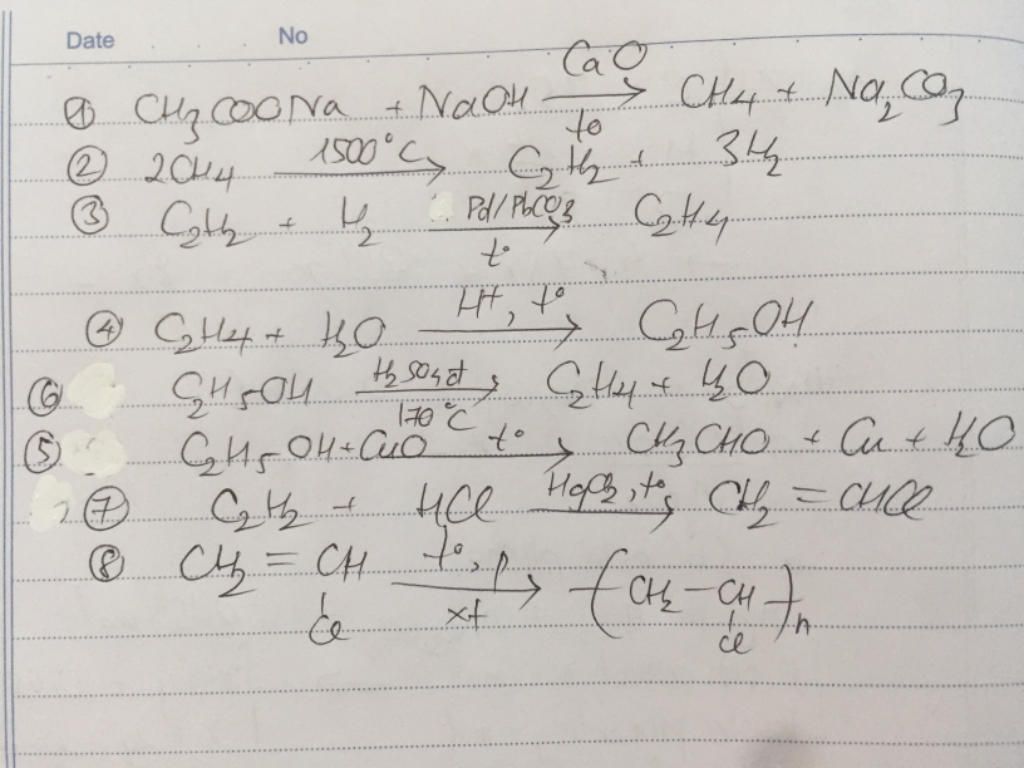 Date No
① CH₃COONa + NaOH —CaO, t°→ CH₄ + Na₂CO₃
② 2CH₄ —1500°C→ C₂H₂ + 3H₂
③ C₂H₂ + H₂ —Pd/PbCO₃, t°→ C₂H₄
④ C₂H₄ + H₂O —H⁺, t°→ C₂H₅OH
⑥ C₂H₅OH —H₂SO₄đ, 170°C→ C₂H₄ + H₂O
⑤ C₂H₅OH + CuO —t°→ CH₃CHO + Cu + H₂O
⑦ C₂H₂ + HCl —HgCl₂, t°→ CH₂ = CHCl
⑧ CH₂ = CH —t°, p, xt→ (CH₂ – CH)n
Cl Cl